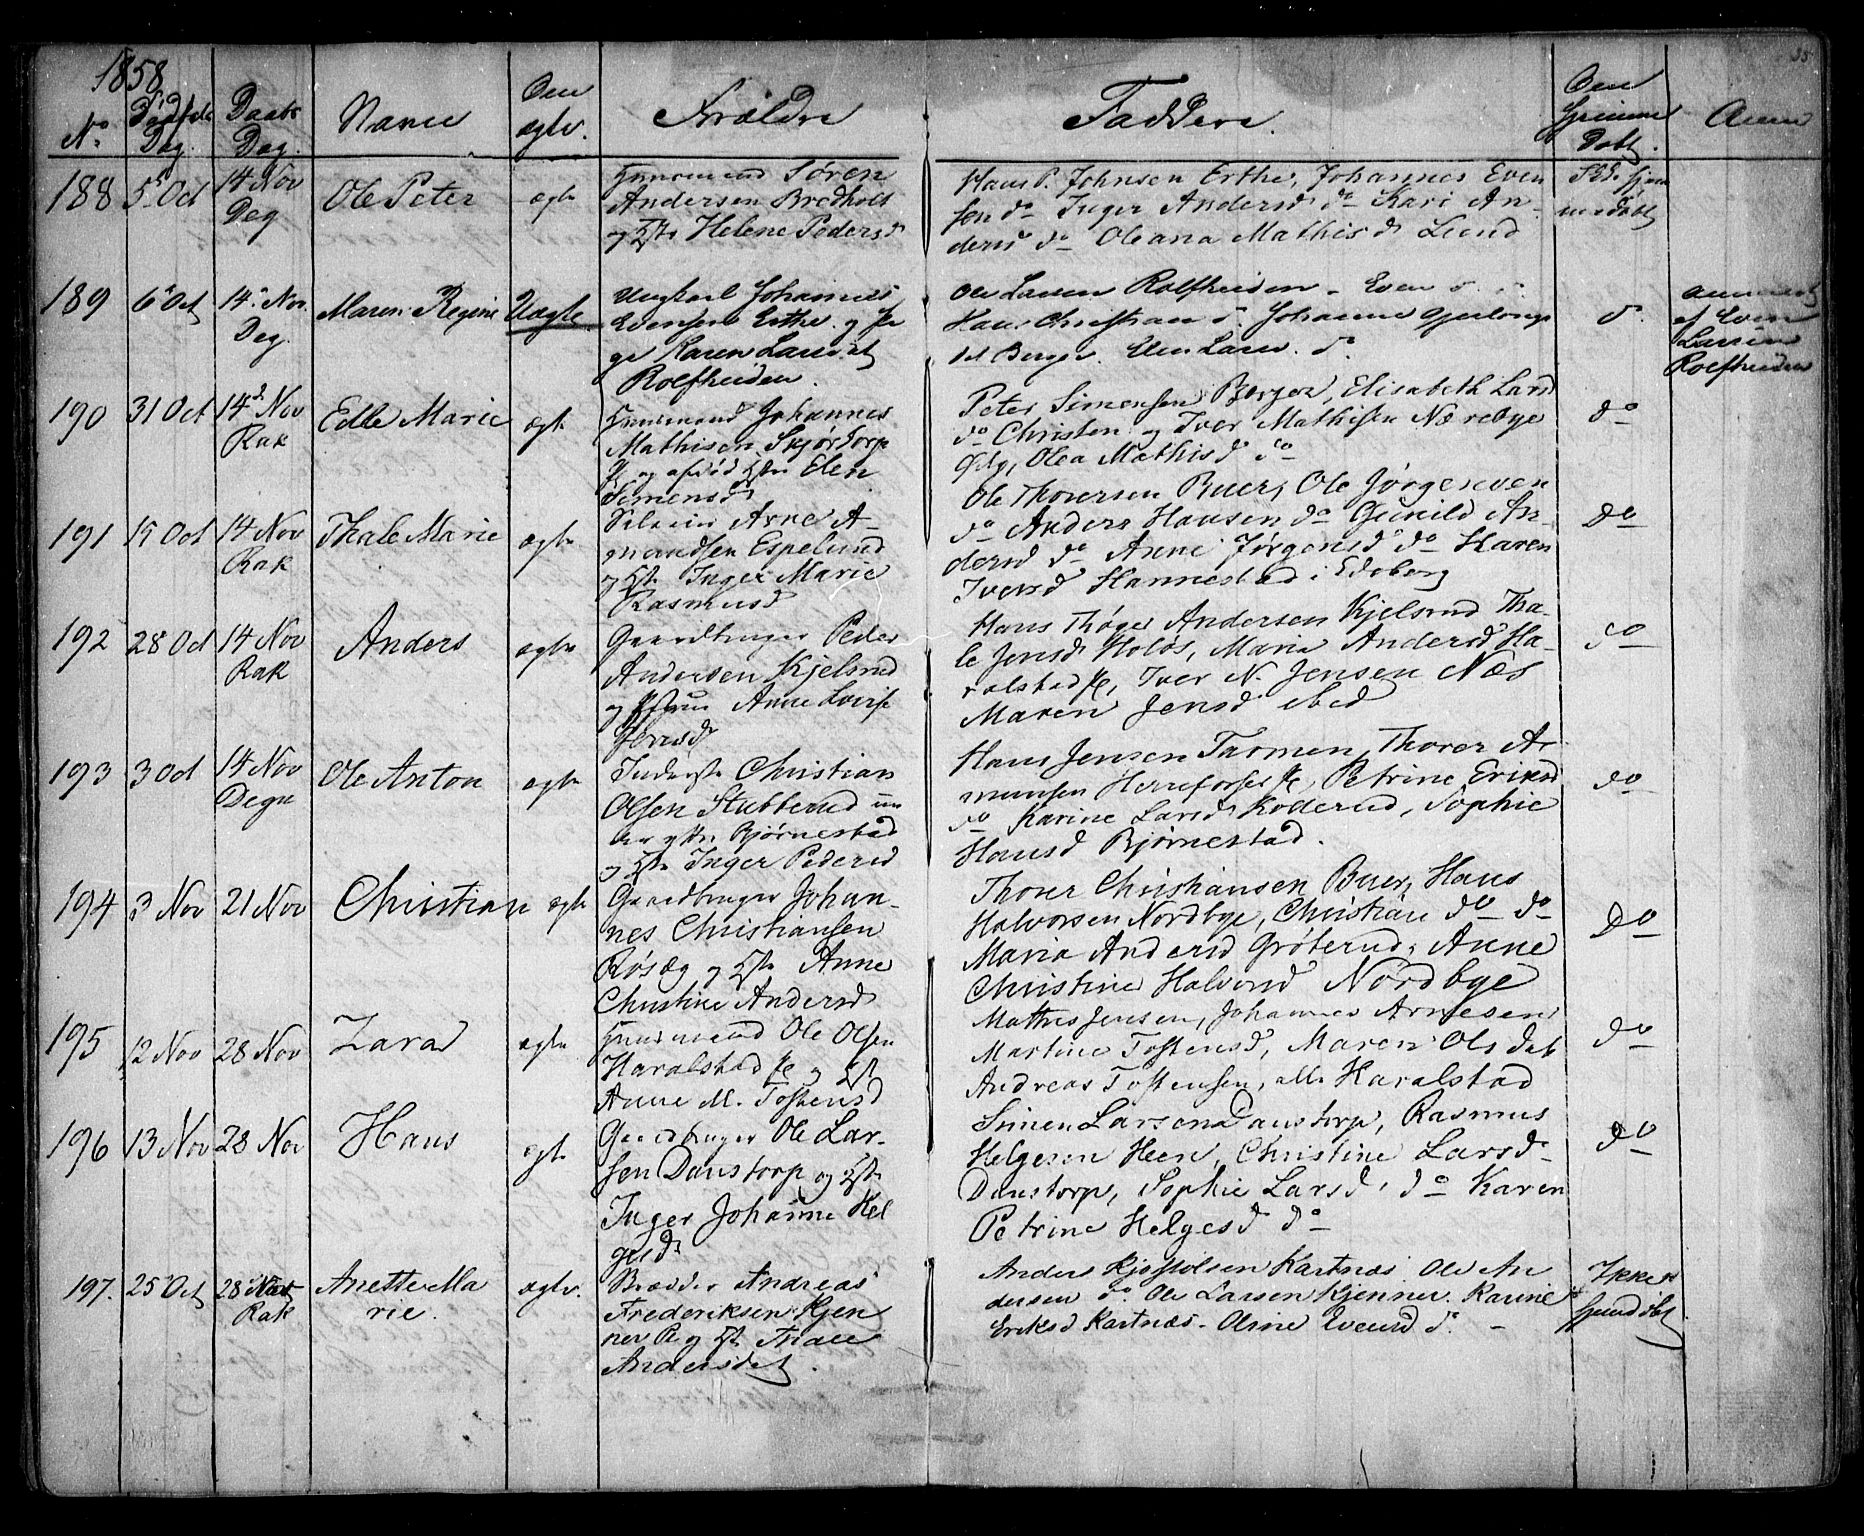 1858
35
No Fødsels Dag. Daabs Dag. Navn Om ægte. Forældre Faddere. Om hjemme Døbt. Anm
188 5 Oct 14 Nov Deg Ole Peter ægte Huusmand Søren
Andersen Bredholt
og Hst Helene Pedersd
Hans P. Johnsen Erthe, Johannes Even
sen do Inger Andersd do Kari An-
dersd do Oleana Mathisd Lund
189 6 Oct 14 Nov. Deg. Maren Regine Uægte Ungkarl Johannes
Evensen Erthe og Pi
ge Karen Larsdat
Rolfheiden.
Ole Larsen Rolfheiden - Even
Hans Christian do. Johanne
Berger. Elen Larsd. do.
do.
Anmeldt
af Even
Larsen
Rolfheiden
190 31 Oct 14 Nov Rak Edle Marie ægte Huusmand Johannes
Mathisen Skjørtorp
Pl og afdød Hst Elen
Simensd
Peter Simensen Berger, Elisabeth Larsd
do Christen og Iver Mathisen Nærebye
Olea Mathisd do
do
191 15 Oct 14 Nov Rak Thale Marie ægte Selveier Arne A-
mundsen Espelund
og Hst Inger Marie
Rasmusd
Ole Thoresen Buer, Ole Jørgensen
do Anders Hansen do Gunild An-
dersd do Anne Jørgensd do Karen
Iversd Hannestad i Edsberg
do
192 28 Oct 14 Nov Rak Anders ægte Gaardbruger Peder
Andersen Kjelsrud
og Hstru Anne Lovise
Jensd
Hans Thøger Andersen Kjelsrud Tha-
le Jensd Holøs, Maria Andersd Ha-
ralstad Pl, Iver N. Jensen Næs
Maren Jensd ibid
do
193 3 Oct 14 Nov Degn Ole Anton ægte Inderst Christian
Olsen Stubberud un
der Bjørnestad
og Hst Inger Pedersd
Hans Jensen Tarmen, Thorer A-
munsen Herreforse Pl, Petrine Eriksd
do Karine Larsd Koderud, Sophie
Hansd Bjørnestad.
do
194 3 Nov 21 Nov Christian ægte Gaardbruger Johan-
nes Christiansen
Røsæg og Hst Anne
Christine Andersd
Thorer Christiansen Buer, Hans
Halvorsen Nordbye, Christian do do
Maria Andersd Grøterud, Anne
Christine Halvorsd Nordbye
do
195 12 Nov 28 Nov Zara ægte Huusmand Ole Olsen
Haralstad Pl og Hst
Anne M. Tostensd
Mathis Jensen, Johannes Arnesen
Martine Tostensd, Maren Olsdat
Andreas Tostensen, alle Haralstad
do
196 13 Nov 28 Nov Hans ægte Gaardbruger Ole Lar-
sen Danstorp og Hst
Inger Johanne Hel
gesd
Simen Larsen Danstorp, Rasmus
Helgesen Heen, Christine Larsd
Danstorp, Sophie Larsd do Karen
Petrine Helgesd do
do
197. 25 Oct 28 Nov Rak Anette Ma
rie. ægte. Andreas
Frederiksen Kjen
ner Pl og Hst Thale
Andersdat.
Anders Kjøstolsen Kartnæs. Ole An
dersen do. Ole Larsen Kjenner. Karine
Eriksd Kartnæs. Oline Evensd do. -
Ikke
hjemdøbt